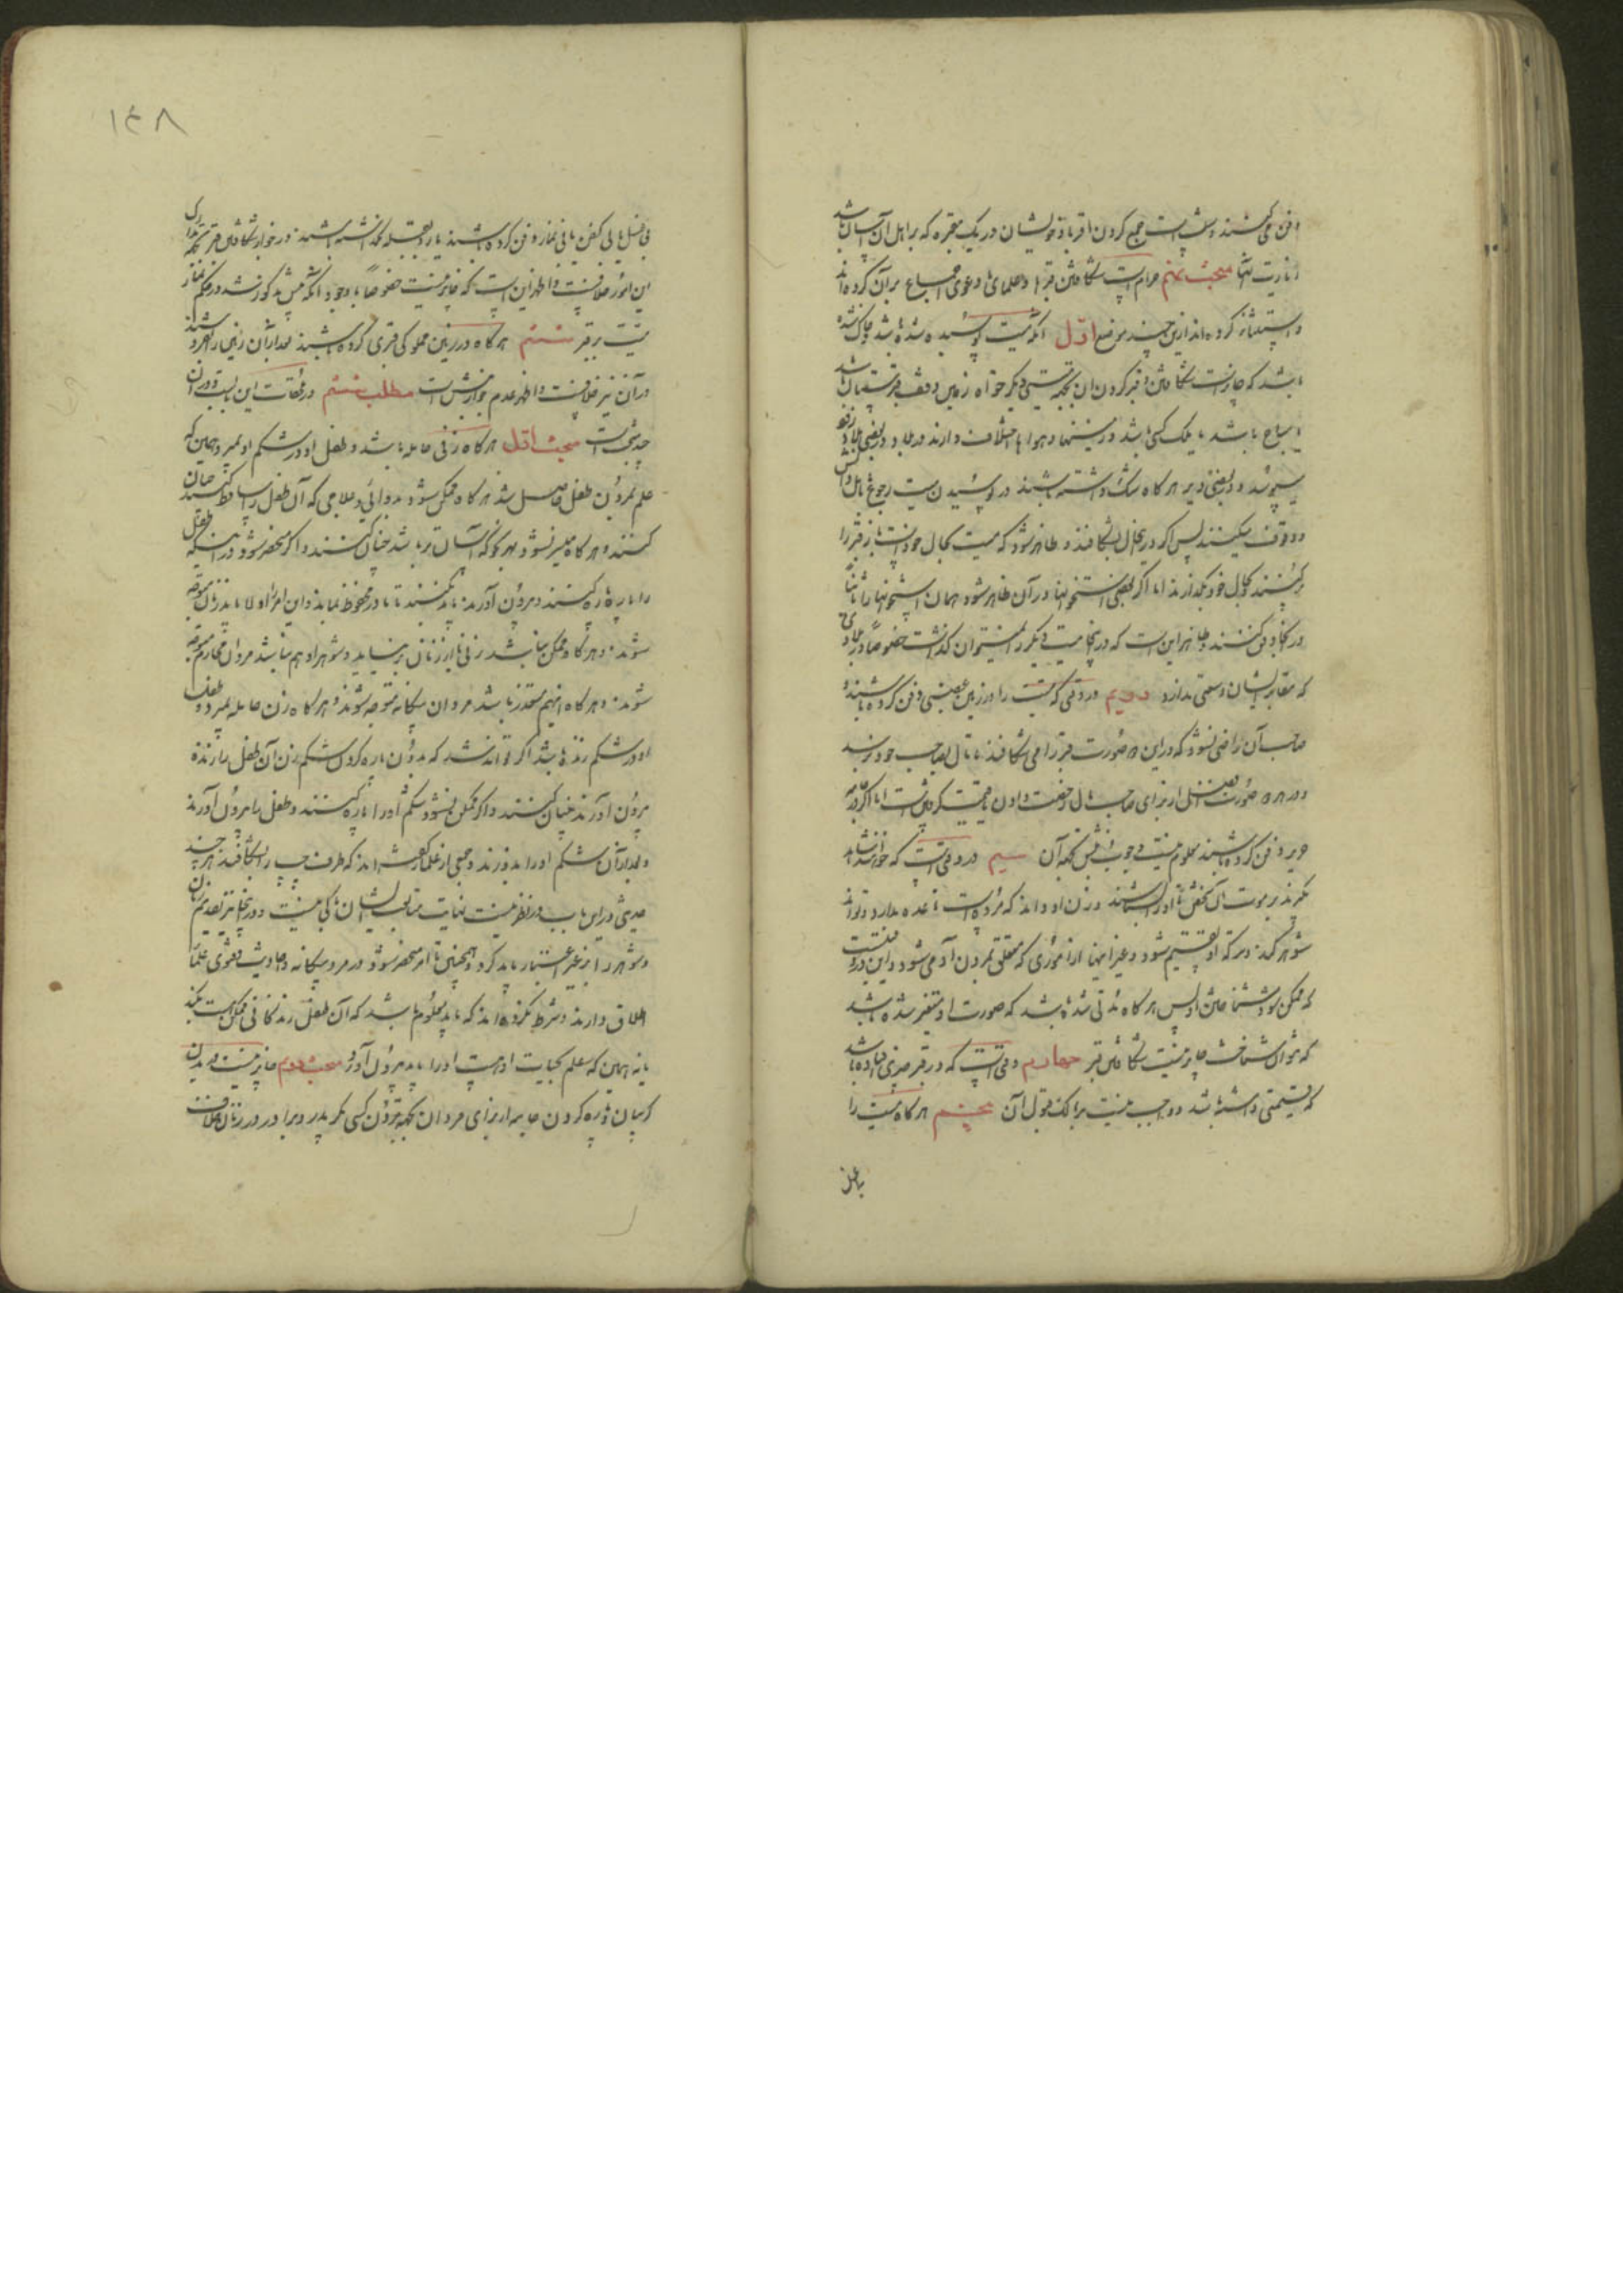 دفن می کنند و سنت است جمع کردن اقربا و خویشان در یک مقبره که بر اهل آن آسان باشد
زیارت آنها مبحث نهم حرام است شکافتن قبرها و علمای ما دعوی اجماع بر آن کرده اند
و استثنا کرده اند ازین چند موضع اول آنکه میت پوسیده شده باشد و خاک شده
باشد که جایز است شکافتن و قبر کردن آن بجهة میتی دیگر خواه زمین وقف قبرستان باشد
یا مباح باشد یا ملک کسی باشد و زمینها و هواها اختلاف دارند در بلاد و در بعضی بلاد زود
میپوسد و در بعضی دیر هر گاه شک داشته باشند در پوسیدن میت رجوع باهل دانش
و وقوف میکنند پس اگر در این حال بشکافند و ظاهر شود که میت بحال خود است باز قبر را
بپوشند بحال خود بگذارند اما اگر بعضی استخوانها در آن ظاهر شود همان استخوانها را ثانیاً
در آنجا دفن کنند و ظاهر این است که در آنجا میت دیگر را میتوان گذاشت خصوصاً در بلادی
که مقابر ایشان وسعتی ندارد دویم در وقتی که میت را در زمین غصبی دفن کرده باشند
صاحب آن راضی نشود که در این صورت قبر را می شکافند تا مال بصاحب خود برسد
و در هر دو صورت افضل از برای صاحب مال رخصت دادن یا قیمت گرفتن است اما اگر در جامه
حریر دفن کرده باشند معلوم نیست وجوب نبش بجهة آن سیم در وقتی است که خواهند شاهد
بگیرند بر موت آن شخص تا او را بشناسند و زن او داند که مرده است تا عده بدارد و تواند
شوهر کند و ترکه او تقسیم شود و غیر اینها از اموری که متعلق بمردن آدمی میشود و این در وقتیست
که ممکن بود شناختن او پس هر گاه مدتی شده باشد که صورت او متغیر شده باشد
که نتوان شناخت جایز نیست شکافتن قبر چهارم وقتی است که در قبر چیزی افتاده باشد
که قیمتی داشته باشد و واجب نیست بر مالک قبول آن پنجم هر گاه میت را
بی غسل
بی غسل یا بی کفن یا بی نماز دفن کرده باشند یا رو بقبله نگذاشته باشند و در جواز شکافتن قبر بجهة تدارک
این امور خلافست و اظهر این است که جایز نیست خصوصاً با وجود آنکه پیش مذکور شد در حکم نماز
میت بر قبر ششم هر گاه در زمین مملوکی قبری کرده باشند بعد از آن زمین را بفروشند
در آن نیز خلافست و اظهر عدم جواز نبش است مطلب ششم در ملحقات این باب و در آن
چند مبحث است مبحث اول هر گاه زنی حامله باشد و طفل او در شکم او بمیرد همین که
علم بمردن طفل حاصل شد هر گاه ممکن شود بدوائی و علاجی که آن طفل را ساقط کنند چنان
کنند و هر گاه میسر نشود بهر نحو که آسان تر باشد چنان کنند و اگر منحصر شود در اینکه طفل
را پاره پاره کنند و بیرون آورند باید بکنند تا مادر محفوظ بماند و این امر را اولا باید زنان متوجه
شوند و هر گاه ممکن نباشد زنی یا از زنان بر نیاید و شوهر او هم نباشد مردان محارم متوجه
شوند و هر گاه آنهم متعذر باشد مردان بیگانه متوجه شوند و هر گاه زن حامله بمیرد و طفل
او در شکم زنده باشد اگر تواند شد که بدون پاره کردن شکم زن آن طفل را زنده
بیرون آورند چنان کنند و اگر ممکن نشود شکم او را پاره کنند و طفل را بیرون آورند
و بعد از آن شکم او را بدوزند و جمعی از علما گفته اند که طرف چپ را بشکافند هر چند
حدیثی در این باب در نظر نیست نهایت متابعت ایشان باکی نیست و در اینجا نیز تقدیم زنان
و شوهر را بر غیر اعتبار باید کرد و همچنین تا امر منحصر شود در مرد بیگانه و احادیث و فتوی علما
اطلاق دارند و شرط نکرده اند که باید معلوم باشد که آن طفل زندگانی ممکن هست بکند
یا نه همین که علم بحیات او هست او را باید بیرون آورد مبحث دوم جایز نیست دریدن
گریبان و پاره کردن جامه از برای مردان بجهة مردن کسی مگر پدر و برادر و در زنان خلاف
۱۴۸